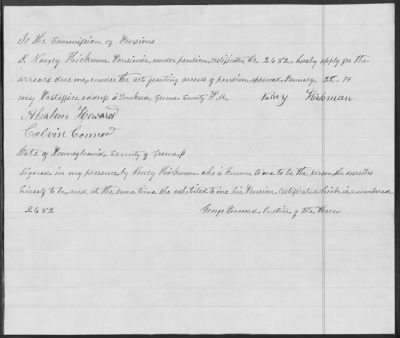 To the Commission of Pensions
I, Nancy Hickman Pensioner, under pension certificate No. 2682. hereby apply for the
arrears due me under the act granting arrears of pension approved January 25. 79
my Postoffice address is Greene County Pa. Nancy Hickman
Absalom Howard
Calvin Connor
State of Pennsylvania County of Greene SS
signed in my presence by Nancy Hickman who is known to me to be the person she describes
herself to be and at the same time she exhibited to me her Pension Certificate which is numbered
2682
George Justice of the Peace